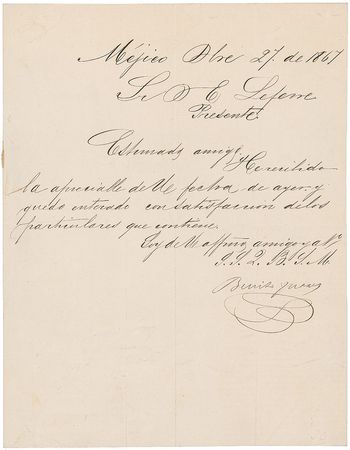 Méjico Dbre 27. de 1867
Sr D E Lefevre
Presente
Estimado amigo
He recibido
la apreciable de Ud fecha de ayer y
quedo enterado con satisfaccion de los
particulares que contiene.
Soy de Ud affmo amigo y
Q. B. S. M
Benito Juarez